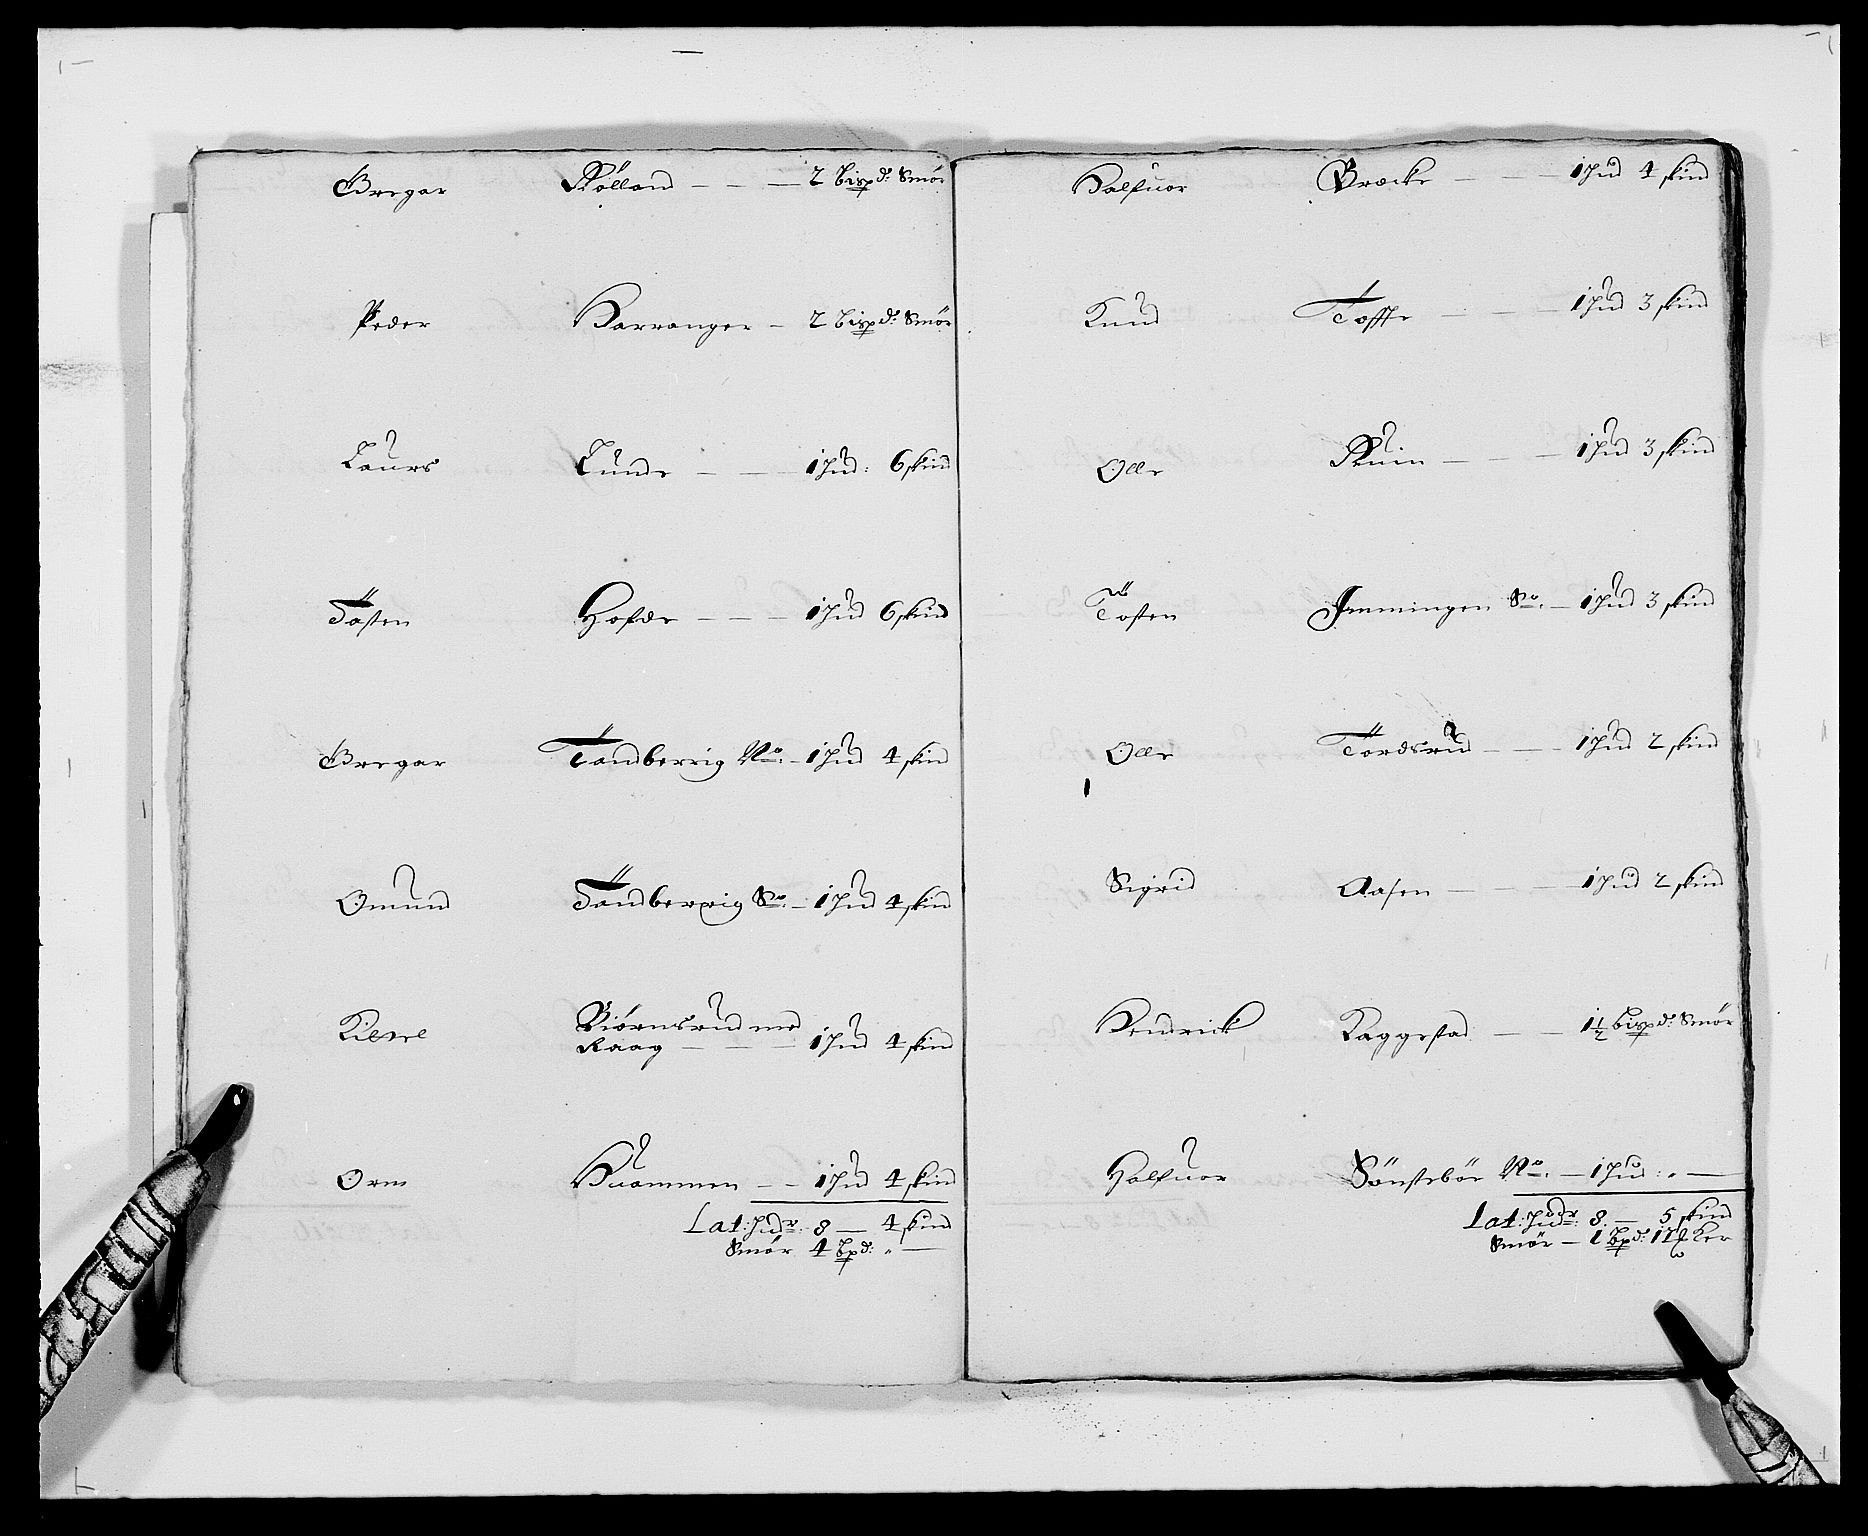 Gregar Rölland — — — 2 bispd: Smör
Peder Harranger — 2 bispd: Smör
Laurs Lunde — — 1 hud: 6 skind
Tosten Hofde — — — 1 hud 6 skind
Gregar Tandberrig No: — 1 hud 4 skind
Omund Tandberrig So: — 1 hud 4 skind
Biörnsrud med
Raag — — — 1 hud 4 skind
Orm Huammen — — 1 hud 4 skind
Lat: hudr: 8 — 4 skind
Smör 4 bpd: „ —
Halfuor Bracke — — — 1 hud 4 skind
Knud Toffte — — — 1 hud 3 skind
Olle Ruin — — — 1 hud 3 skind
Tosten Jmmingen So. — 1 hud 3 skind
Olle Tordsrud — — — 1 hud 2 skind
Sigrid Aasen — — — 1 hud 2 skind
Hendrick Kaggestad — — 1½ bispd: Smör
Halfuor Sönstebör No. — 1 hud: „ —
Lat: hudr: 8 — 5 skind
Smör — 1 bpd: Ker